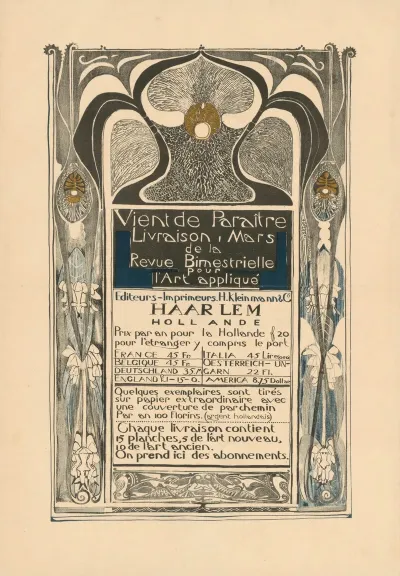 Vient de Paraître
Livraison 1 Mars
de la
Revue Bimestrielle
pour
l'Art appliqué
Editeurs-Imprimeurs. H. Kleinmann & Co
HAARLEM
HOLLANDE
Prix par an pour la Hollande ƒ 20
pour l'etranger y compris le port
FRANCE 45 Fc ITALIA 45 Lire
BELGIQUE 45 Fc OESTERREICH-UN-
DEUTSCHLAND 35 GARN 22 Fl.
ENGLAND £1-15-0. AMERICA 8.75 Dollar
Quelques exemplaires sont tirés
sur papier extraordinaire avec
une couverture de parchemin
Par an 100 florins. (argent hollandais)
Chaque livraison contient
15 planches, 5 de l'art nouveau,
10 de l'art ancien.
On prend ici des abonnements.